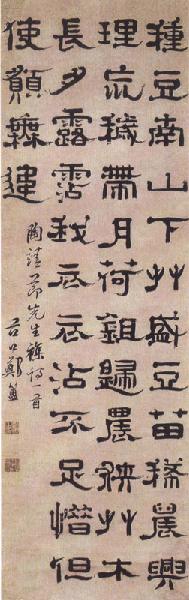 種豆南山下艸盛豆苗稀晨興
理荒穢帶月荷鉏歸晨陜艸木
長夕露霑我衣衣沾不足惜但
使願無違
陶靖節先生雜詩一首
谷口鄭簠